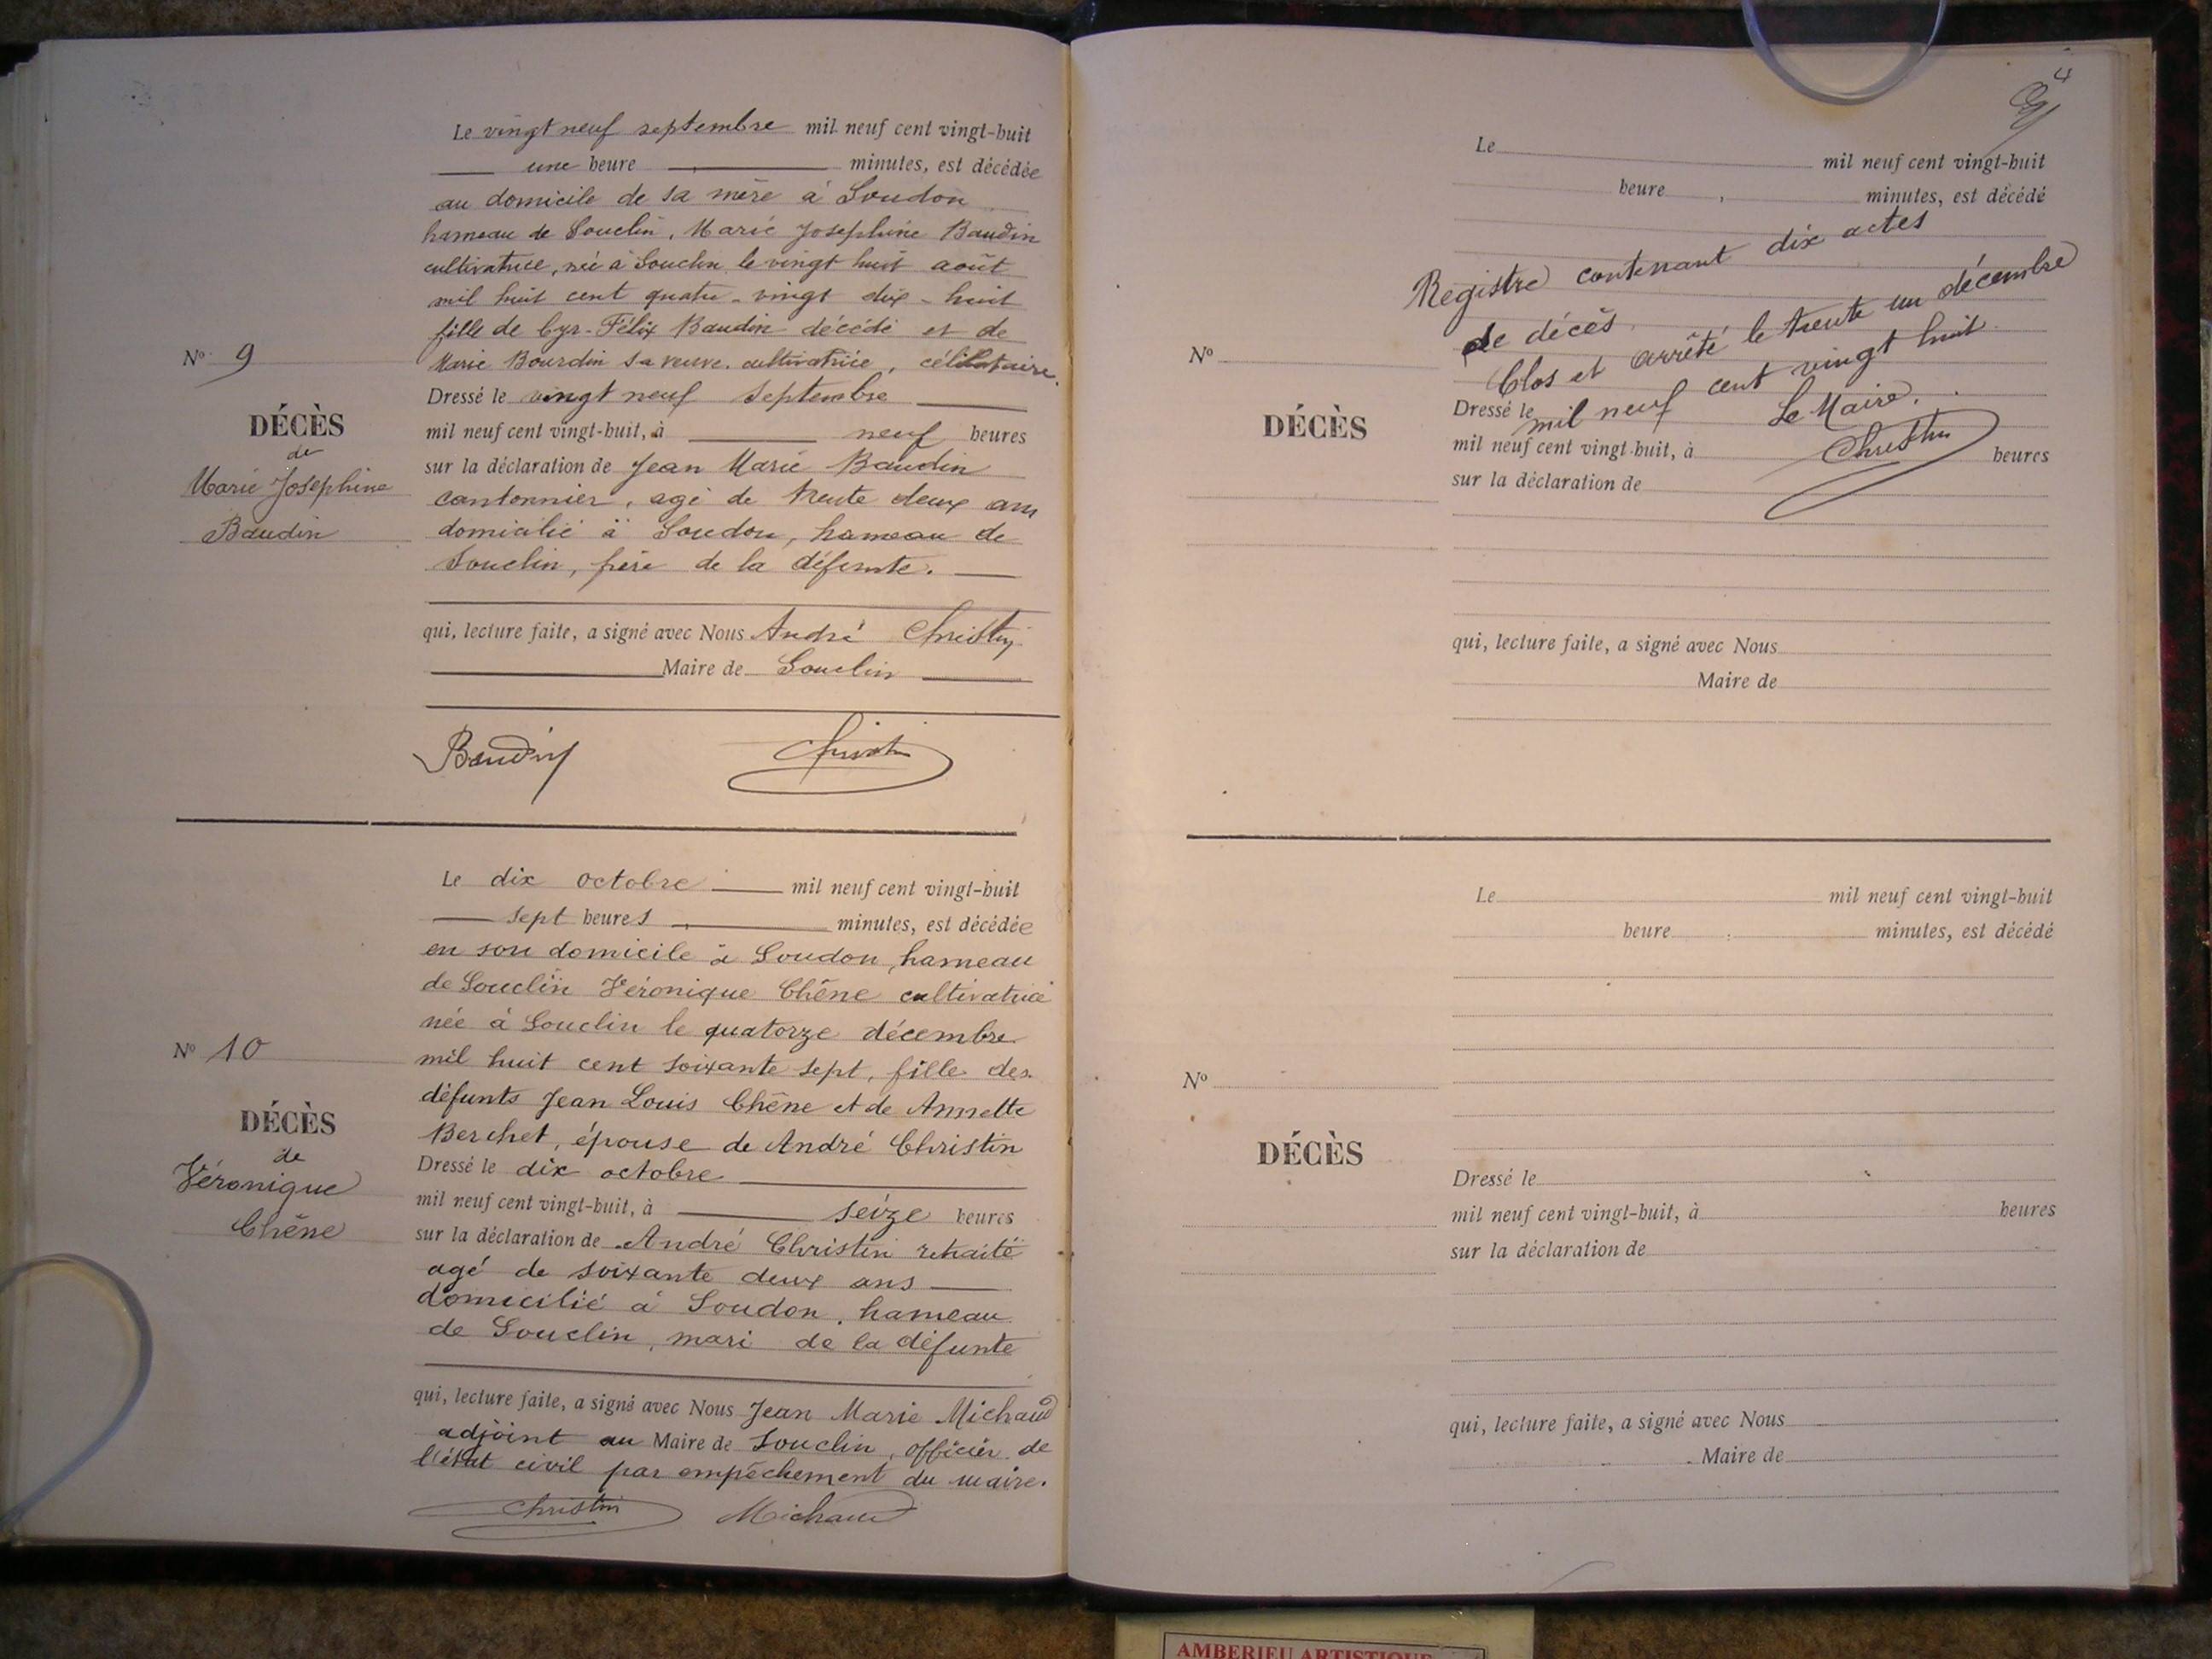 Le vingt neuf septembre mil neuf cent vingt-huit
une heure minutes, est décédée
au domicile de sa mère à Soudon
hameau de Souclin, Marie Josephine Baudin
cultivatrice, née à Souclin le vingt huit août
mil huit cent quatre-vingt dix-huit
fille de Cyr-Félix Baudin décédé et de
Marie Bourdin sa veuve, cultivatrice, célibataire.
N° 9
DÉCÈS
de
Marie Josephine
Baudin
Dressé le vingt neuf septembre
mil neuf cent vingt-huit, à neuf heures
sur la déclaration de Jean Marie Baudin
cantonnier, agé de trente deux ans
domicilié à Soudon, hameau de
Souclin, frère de la défunte.
qui, lecture faite, a signé avec Nous André Christin
Maire de Souclin
Baudin Christin
Le dix octobre mil neuf cent vingt-huit
sept heures minutes, est décédée
en son domicile à Soudon, hameau
de Souclin Véronique Chêne cultivatrice
née à Souclin le quatorze décembre
mil huit cent soixante sept, fille des
défunts Jean Louis Chêne et de Annette
Berchet, épouse de André Christin
N° 10
DÉCÈS
de
Véronique
Chêne
Dressé le dix octobre
mil neuf cent vingt-huit, à seize heures
sur la déclaration de André Christin retraité
agé de soixante deux ans
domicilié à Soudon, hameau
de Souclin, mari de la défunte
qui, lecture faite, a signé avec Nous Jean Marie Michaud
adjoint au Maire de Souclin, officier de
l'état civil par empêchement du maire.
Christin Michaud
4
Le mil neuf cent vingt-huit
heure minutes, est décédé
Registre contenant dix actes
de décès.
Clos et arrêté le trente un décembre
mil neuf cent vingt huit
Le Maire.
Christin
N°
DÉCÈS
Dressé le
mil neuf cent vingt-huit, à heures
sur la déclaration de
qui, lecture faite, a signé avec Nous
Maire de
Le mil neuf cent vingt-huit
heure minutes, est décédé
N°
DÉCÈS
Dressé le
mil neuf cent vingt-huit, à heures
sur la déclaration de
qui, lecture faite, a signé avec Nous
Maire de
AMBERIEU ARTISTIQUE